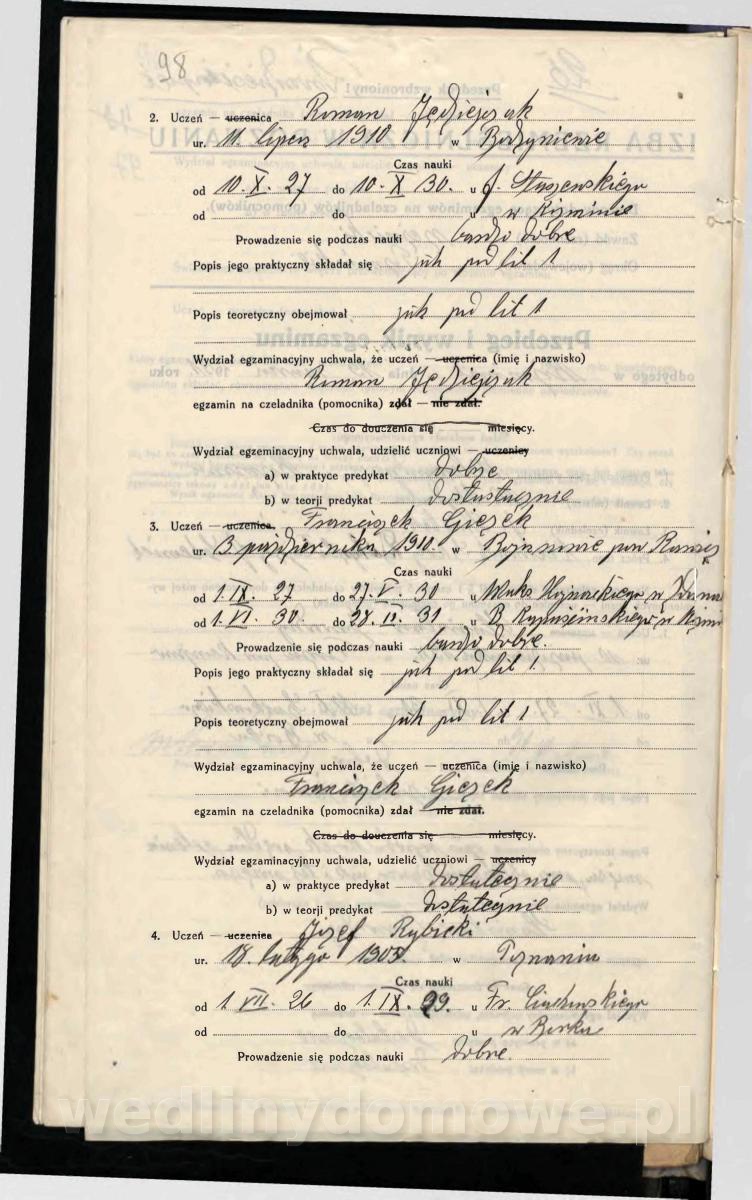 98
2. Uczeń — uczenica Roman Jędrzejczak
ur. 11. lipca 1910. w
Czas nauki
od 10. X. 27 do 10. X 30. u
od do u w Koźminie
Prowadzenie się podczas nauki bardzo dobre
Popis jego praktyczny składał się jak pod lit 1
Popis teoretyczny obejmował jak pod lit 1
Wydział egzaminacyjny uchwala, że uczeń — uczenica (imię i nazwisko)
Roman Jędrzejczak
egzamin na czeladnika (pomocnika) zdał — nie zdał.
Czas do douczenia się miesięcy.
Wydział egzeminacyjny uchwala, udzielić uczniowi — uczenicy
a) w praktyce predykat dobrze
b) w teorji predykat dostatecznie
3. Uczeń — uczenica. Franciszek Giezek
ur. 3 października 1910. w Bojanowie pow
Czas nauki
od 1. IX. 27 do 27. V. 30 u w
od 1. VI. 30. do 28. 31 u B. w
Prowadzenie się podczas nauki bardzo dobre.
Popis jego praktyczny składał się jak pod lit 1.
Popis teoretyczny obejmował jak pod lit 1
Wydział egzaminacyjny uchwala, że uczeń — uczenica (imię i nazwisko)
Franciszek Giezek
egzamin na czeladnika (pomocnika) zdał — nie zdał.
Czas do douczenia się miesięcy.
Wydział egzaminacyjnny uchwala, udzielić uczniowi — uczenicy
a) w praktyce predykat dostatecznie
b) w teorji predykat dostatecznie
4. Uczeń — uczenica Józef Rybicki
ur. 18. lutego w Poznaniu
Czas nauki
od 1. VII. 26 do 1. IX. 29. u Fr.
od do u w Borku
Prowadzenie się podczas nauki dobre.
wedlinydomowe.pl